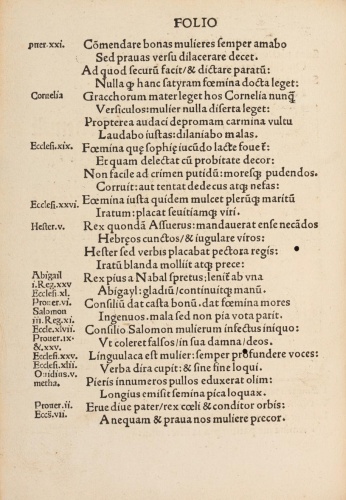 FOLIO
puer.xxi. Cõmendare bonas mulieres semper amabo
Sed prauas versu dilacerare decet.
Ad quod securũ facit/& dictare paratũ:
Nulla ꝙ hanc satyram fœmina docta leget:
Cornelia Gracchorum mater leget hos Cornelia nunꝗ̃
Versiculos: mulier nulla diserta leget:
Propterea audaci depromam carmina vultu
Laudabo iustas: dilaniabo malas.
Ecclesi.xix. Fœmina que sophię iucũdo lacte fouet̃:
Et quam delectat cũ probitate decor:
Non facile ad crimen putidũ: moresꝗ pudendos.
Corruit: aut tentat dedecus atꝗ nefas:
Ecclesi.xxvi. Fœmina iusta quidem mulcet plerũꝗ maritũ
Iratum: placat seuitiamꝗ viri.
Hester.v. Rex quondã Assuerus: mandauerat ense necãdos
Hebręos cunctos/& iugulare viros:
Hester sed verbis placabat pectora regis:
Iratũ blanda molliit atꝗ prece:
Abigail Rex pius a Nabal spretus: lenit̃ ab vna
i.Reg.xxv Abigayl: gladiũ/continuitꝗ manũ.
Ecclesi.xl.
Prouer.vi. Consiliũ dat casta bonũ. dat fœmina mores
Salomon Ingenuos. mala sed non pia vota parit.
iii.Reg.xi.
Eccle.xlvii. Consilio Salomon mulierum infectus iniquo:
Prouer.ix Vt coleret falsos/in sua damna/deos.
&.xxv.
Ecclesi.xxv. Linguulaca est mulier: semper profundere voces:
Ecclesi.xlii. Verba dira cupit: & sine fine loqui.
Ouidius.v. Pieris innumeros pullos eduxerat olim:
metha. Longius emisit semina pica loquax.
Prouer.ii. Erue diue pater/rex cœli & conditor orbis:
Eccs.vii. A nequam & praua nos muliere precor.